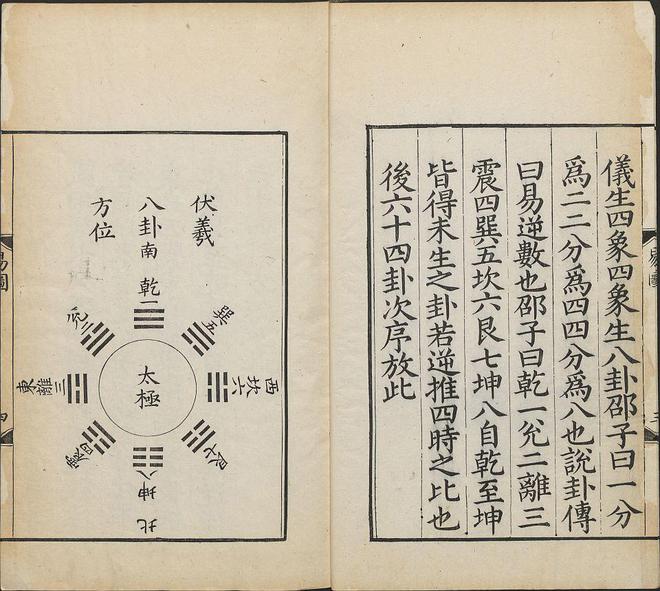 儀生四象四象生八卦邵子曰一分
爲二二分爲四四分爲八也說卦傳
曰易逆數也邵子曰乾一兌二離三
震四巽五坎六艮七坤八自乾至坤
皆得未生之卦若逆推四時之比也
後六十四卦次序放此
易圖
三
伏羲
八卦
方位
南
乾一
兌二
離三
東
震四
巽五
坎六
西
艮七
坤八
北
太極
易圖
四